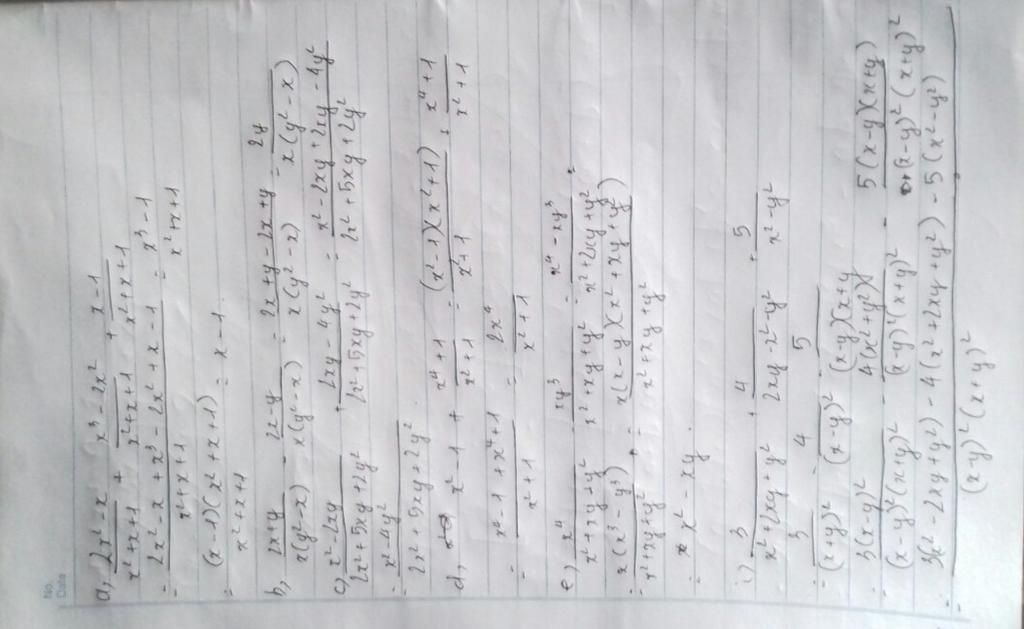 No.
Date
a, (2x² - x)/(x² + x + 1) + (x³ - 2x²)/(x² + x + 1) + (x - 1)/(x² + x + 1)
= (2x² - x + x³ - 2x² + x - 1)/(x² + x + 1) = (x³ - 1)/(x² + x + 1)
= ((x - 1)(x² + x + 1))/(x² + x + 1) = x - 1
b, (2x + y)/(x(y² - x)) - (2x - y)/(x(y² - x)) = (2x + y - 2x + y)/(x(y² - x)) = 2y/(x(y² - x))
c, (x² - 2xy)/(2x² + 5xy + 2y²) + (2xy - 4y²)/(2x² + 5xy + 2y²) = (x² - 2xy + 2xy - 4y²)/(2x² + 5xy + 2y²)
= (x² - 4y²)/(2x² + 5xy + 2y²)
d, x² - 1 + (x⁴ + 1)/(x² + 1) = ((x² - 1)(x² + 1))/(x² + 1) + (x⁴ + 1)/(x² + 1)
= (x⁴ - 1 + x⁴ + 1)/(x² + 1) = 2x⁴/(x² + 1)
e, x⁴/(x² + xy + y²) - xy³/(x² + xy + y²) = (x⁴ - xy³)/(x² + xy + y²) =
(x(x³ - y³))/(x² + xy + y²) = (x(x - y)(x² + xy + y²))/(x² + xy + y²)
= x² - xy
i, 3/(x² + 2xy + y²) + 4/(2xy - x² - y²) + 5/(x² - y²)
= 3/(x + y)² - 4/(x - y)² 5/((x - y)(x + y)
= 3(x - y)²/((x - y)²(x + y)²) 4(x² + y²)/((x - y)²(x + y)²) - 5(x - y)(x + y)/((x - y)²(x + y)²)
= (3(x² - 2xy + y²) - 4(x² + 2xy + y²) - 5(x² - y²))/((x - y)²(x + y)²)